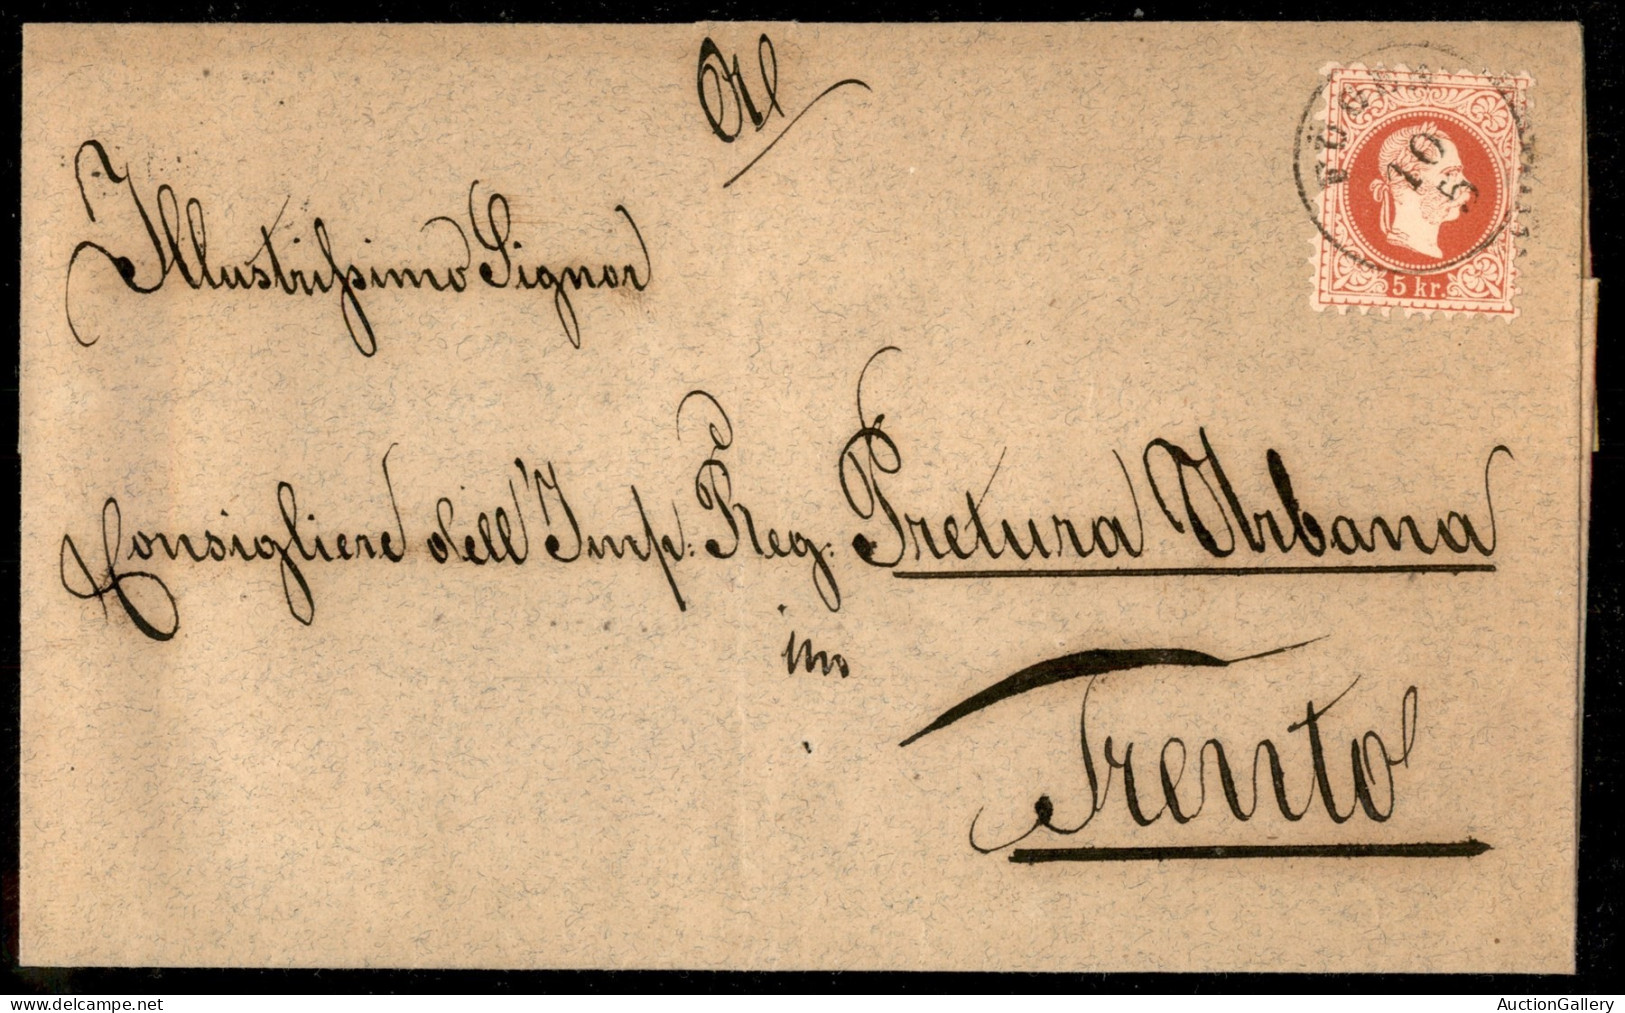 Al
Illustrissimo Signor
Consigliere dell'Imp: Reg: Pretura Urbana
in
Trento
10
5
5 kr.
AuctionGallery